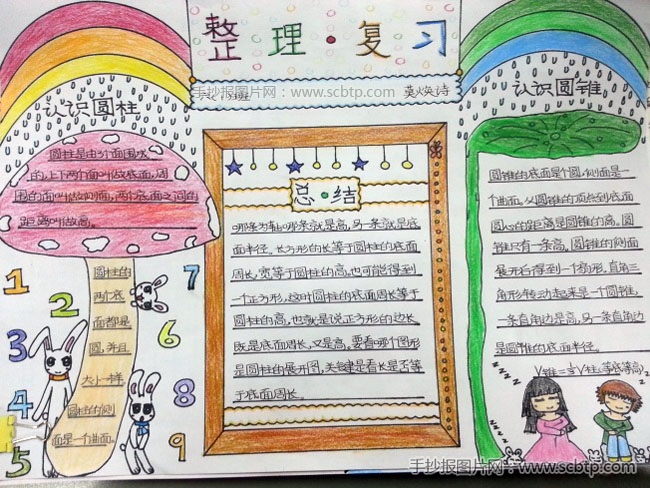 整理·复习
手抄报图片网：www.scbtp.com
认识圆柱
圆柱是由3个面围成
的,上下两个面叫做底面,周
围的面叫做侧面,两个底面之间的
距离叫做高。
圆柱的
两个底
面都是
圆,并且
大小一样,
圆柱的侧
面是一个曲面。
1
2
3
4
5
7
6
8
9
总·结
哪条为轴哪条就是高,另一条就是底
面半径。长方形的长等于圆柱的底面
周长,宽等于圆柱的高,也可能得到
一个正方形,这时圆柱的底面周长等于
圆柱的高,也就是说正方形的边长
既是底面周长,又是高,要看哪个图形
是圆柱的展开图,关键是看长是否等
于底面周长。
认识圆锥
圆锥的底面是个圆,侧面是一
个曲面。从圆锥的顶点到底面
圆心的距离是圆锥的高。圆
锥只有一条高。圆锥的侧面
展开后得到一个扇形,直角三
角形转动起来是一个圆锥,
一条直角边是高,另一条直角边
是圆锥的底面半径。
V锥=⅓V柱(等底等高)
ZZZZ
ZZZZ
手抄报图片网：www.scbtp.com